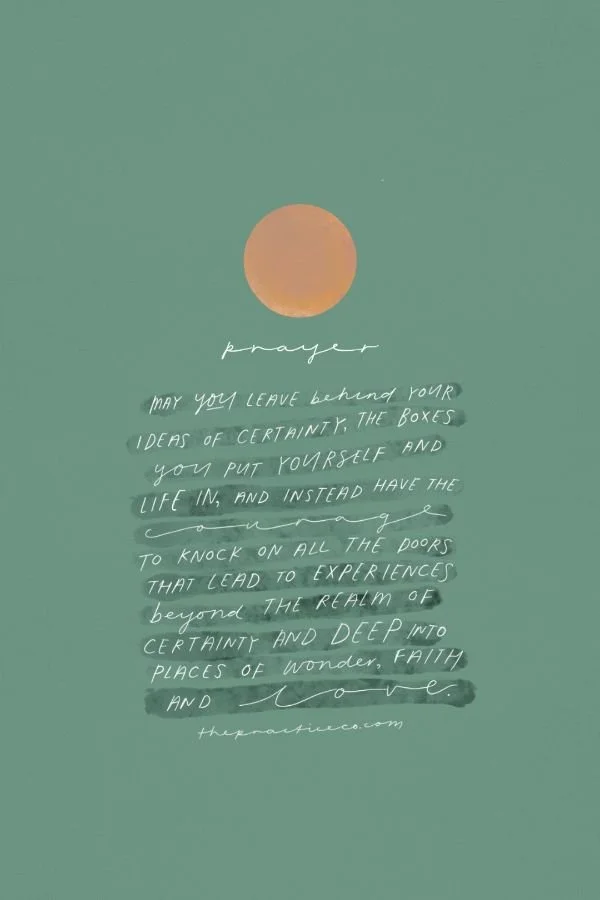 prayer
MAY YOU LEAVE behind YOUR
IDEAS OF CERTAINTY, THE BOXES
YOU PUT YOURSELF AND
LIFE IN, AND INSTEAD HAVE THE
courage
TO KNOCK ON ALL THE DOORS
THAT LEAD TO EXPERIENCES
beyond THE REALM OF
CERTAINTY AND DEEP INTO
PLACES OF wonder, FAITH
AND love.
thepracticeco.com